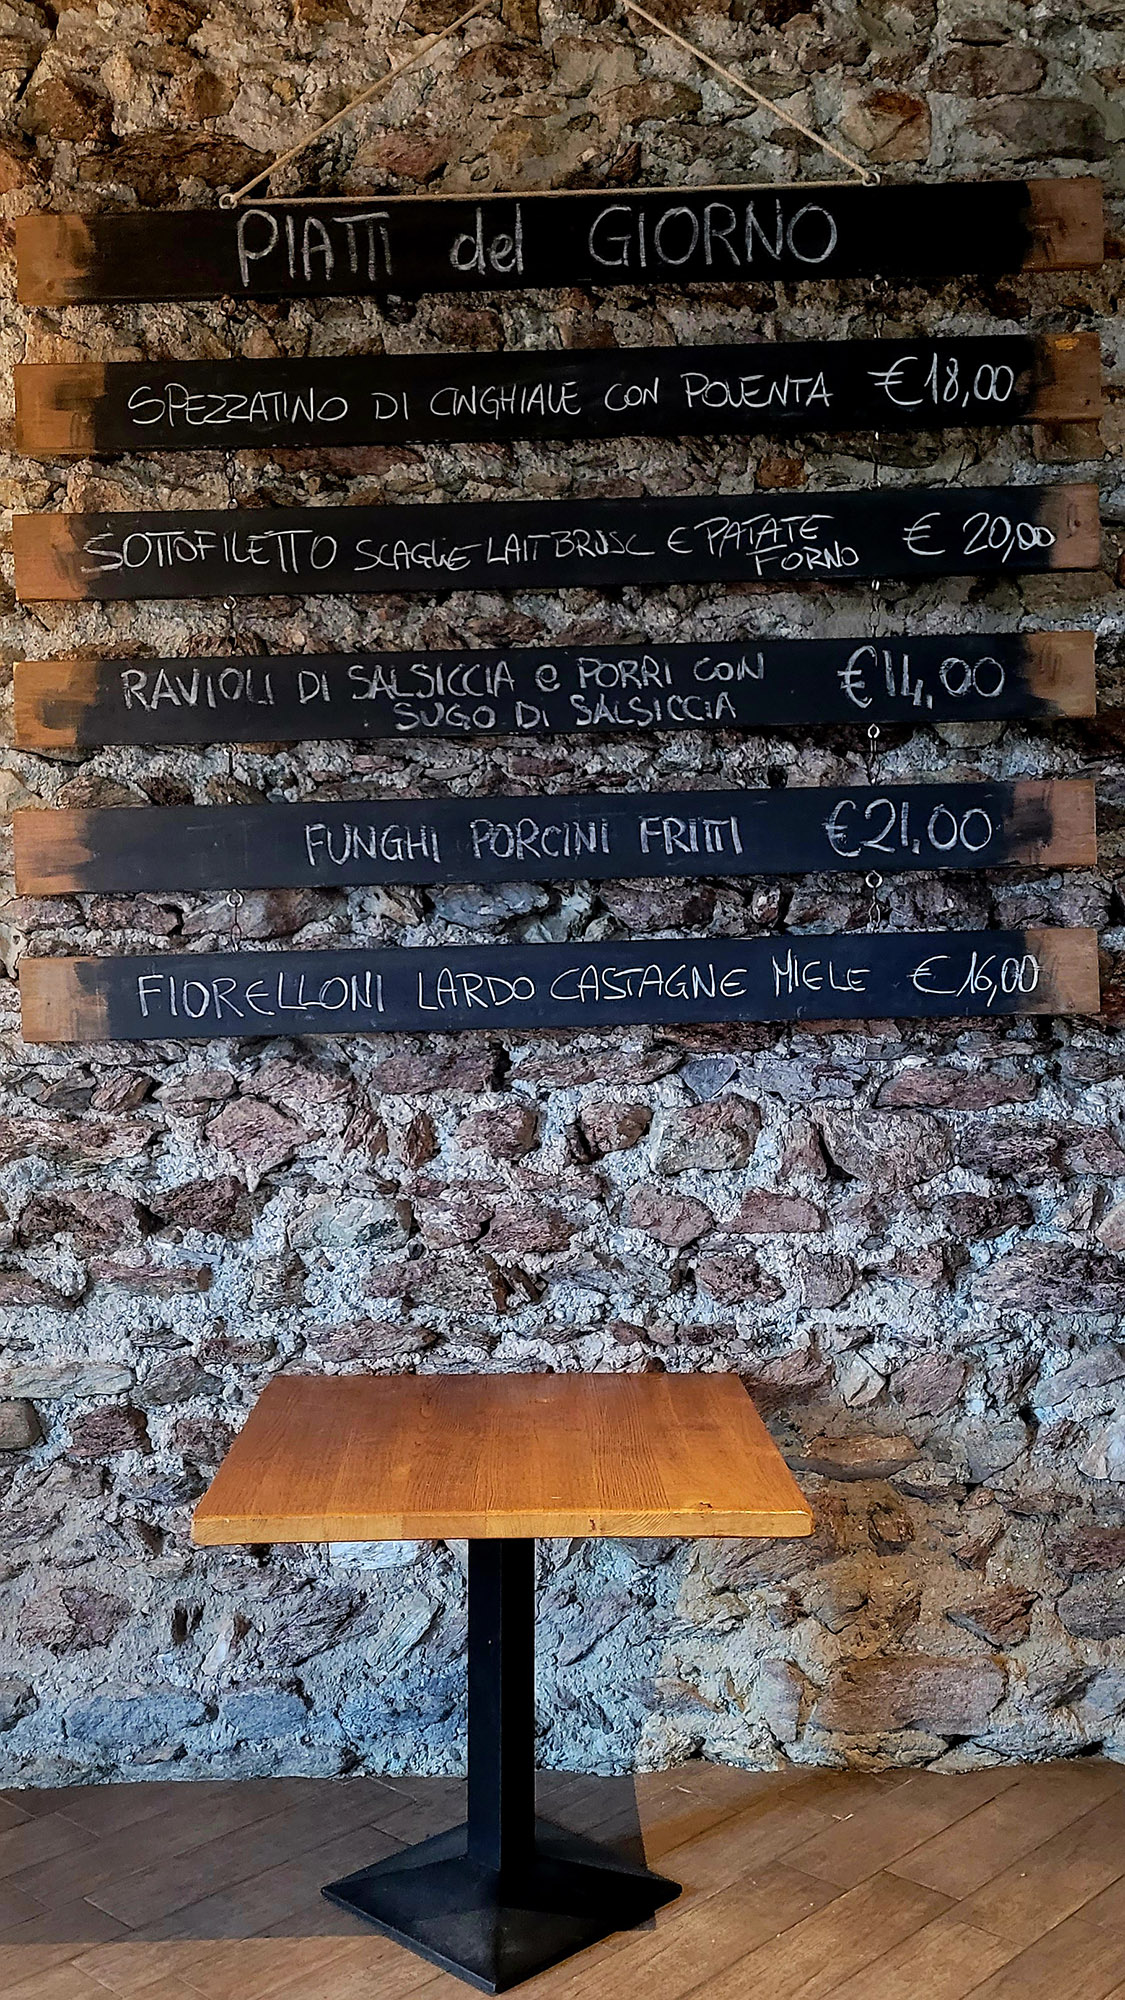 PIATTI del GIORNO
SPEZZATINO DI CINGHIALE CON POLENTA €18,00
SOTTOFILETTO SCAGLIE LAITBRUSC E PATATE FORNO € 20,00
RAVIOLI DI SALSICCIA e PORRI CON €14,00
SUGO DI SALSICCIA
FUNGHI PORCINI FRITTI €21,00
FIORELLONI LARDO CASTAGNE MIELE €16,00